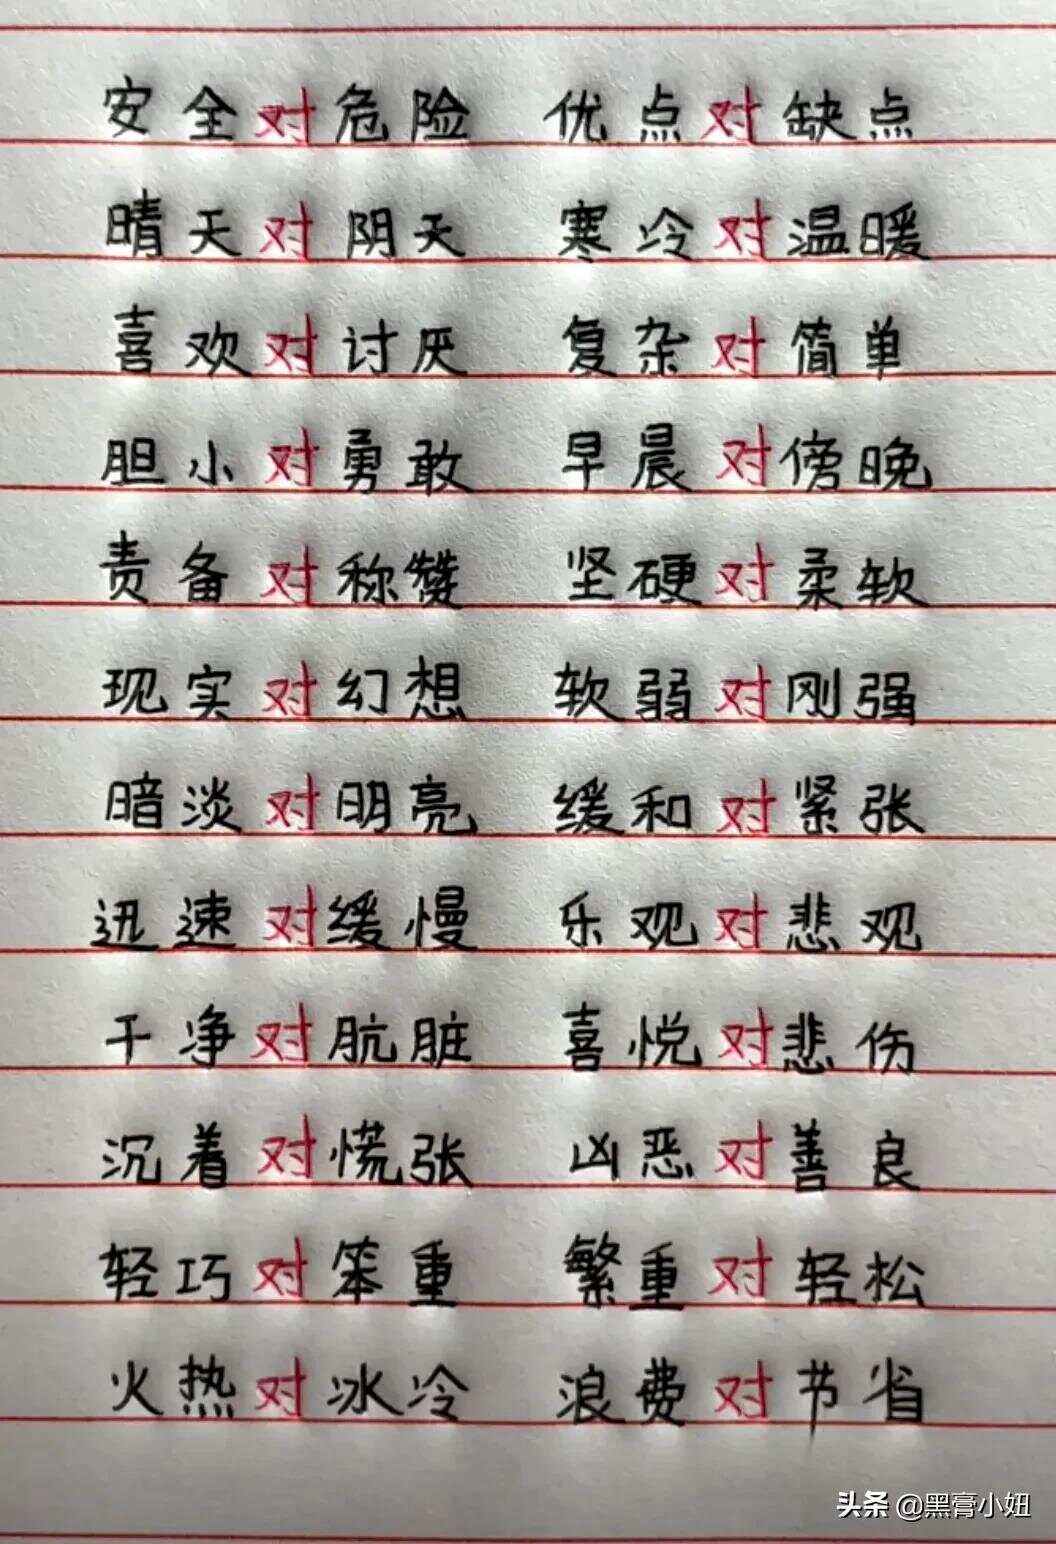 安全对危险 优点对缺点
晴天对阴天 寒冷对温暖
喜欢对讨厌 复杂对简单
胆小对勇敢 早晨对傍晚
责备对称赞 坚硬对柔软
现实对幻想 软弱对刚强
暗淡对明亮 缓和对紧张
迅速对缓慢 乐观对悲观
干净对肮脏 喜悦对悲伤
沉着对慌张 凶恶对善良
轻巧对笨重 繁重对轻松
火热对冰冷 浪费对节省
头条 @黑膏小妞